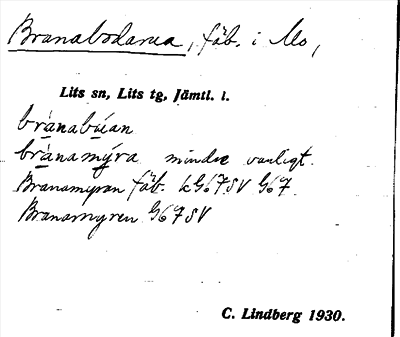 Branabodarna, fäb. i Mo,
Lits sn, Lits tg, Jämtl. l.
brànabúan
brànamýra mindre vanligt.
Branamyran fäb. kG67SV G67.
Branamyren G67SV
C. Lindberg 1930.